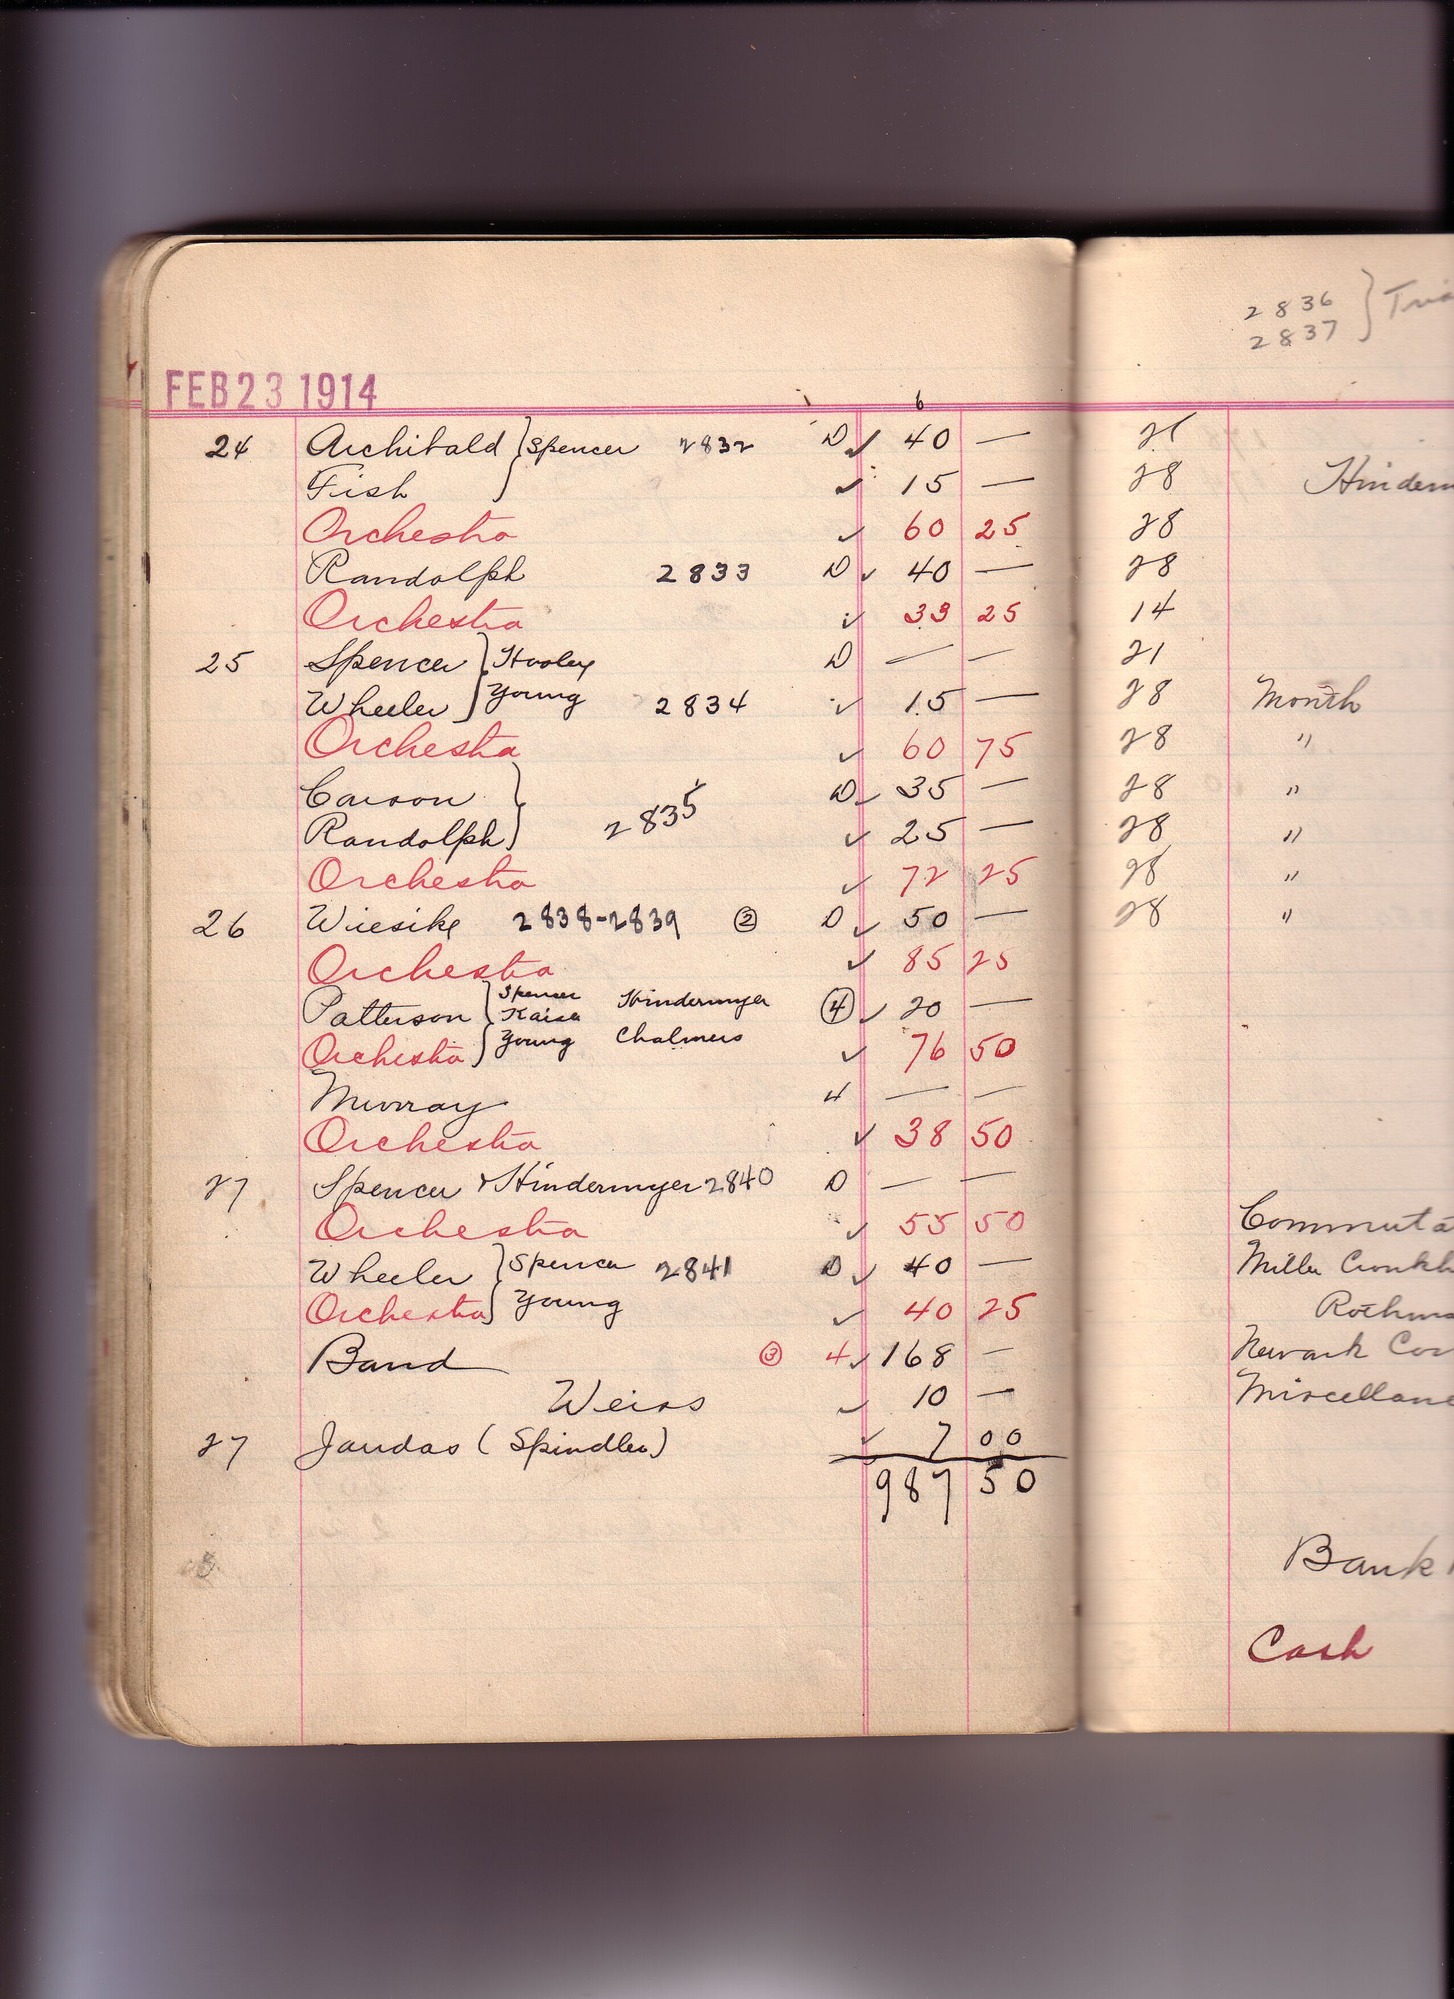 FEB 23 1914
6
24 Archibald } Spencer 2832 D ✓ 40 —
Fish ✓ 15 —
Orchestra ✓ 60 25
Randolph 2833 D ✓ 40 —
Orchestra ✓ 33 25
25 Spencer } Hooley D — —
Wheeler } Young 2834 ✓ 15 —
Orchestra ✓ 60 75
Carson } D ✓ 35 —
Randolph } 2835 ✓ 25 —
Orchestra ✓ 72 25
26 Wiesike 2838-2839 ② D ✓ 50 —
Orchestra ✓ 85 25
Patterson } Spencer Hindermyer ④ ✓ 20 —
Kaisa
Orchestra } Young Chalmers ✓ 76 50
Murray 4 — —
Orchestra ✓ 38 50
27 Spencer & Hindermyer 2840 D — —
Orchestra ✓ 55 50
Wheeler } Spencer 2841 D ✓ 40 —
Orchestra } Young ✓ 40 25
Band ③ 4 ✓ 168 —
Weiss ✓ 10 —
27 Jaudas (Spindler) ✓ 7 00
987 50
2836 }
2837 }
28 Hinderm
28
28
14
21
28 Month
28 "
28 "
28 "
28 "
28 "
Commuta
Mille Cronkh
Rothm
Newark Cor
Miscellane
Bank
Cash